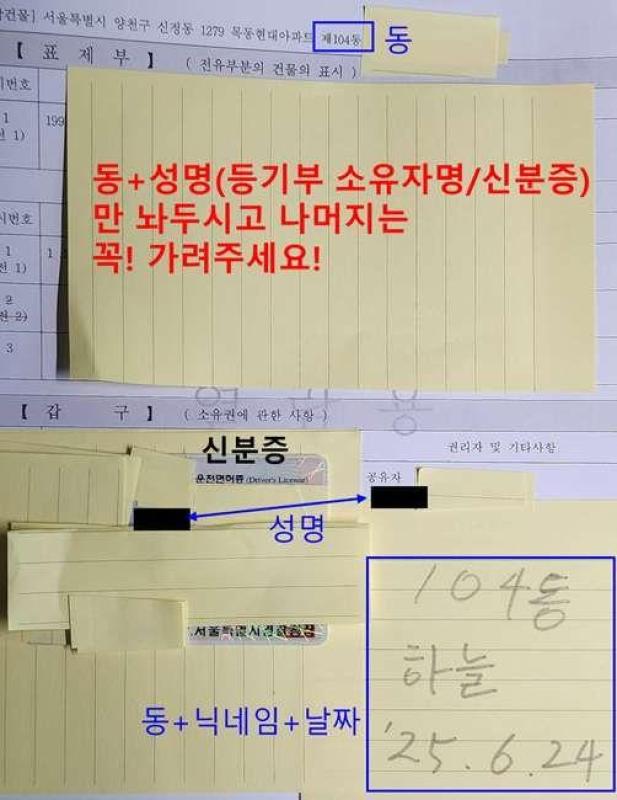 건물] 서울특별시 양천구 신정동 1279 목동현대아파트 제104동 동
【 표 제 부 】 ( 전유부분의 건물의 표시 )
번호
1 199
1)
동+성명(등기부 소유자명/신분증)
만 놔두시고 나머지는
꼭! 가려주세요!
번호
1 1
전 1)
2
전 2)
3
열 람 용
【 갑 구 】 ( 소유권에 관한 사항 )
신분증 권리자 및 기타사항
운전면허증 (Driver's License) 공유자
성명
104동
서울특별시경찰청장
하늘
동+닉네임+날짜
'25.6.24